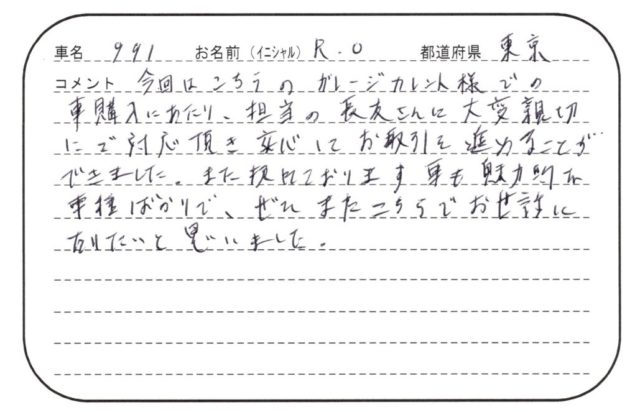 車名 991 お名前（イニシャル） R.O 都道府県 東京
コメント 今回はこちらのガレージカレント様での
車購入にあたり、担当の長友さんに大変親切
にご対応頂き安心してお取引を進めることが
できました。また扱われております車も魅力的な
車種ばかりで、ぜひまたこちらでお世話に
なりたいと思いました。